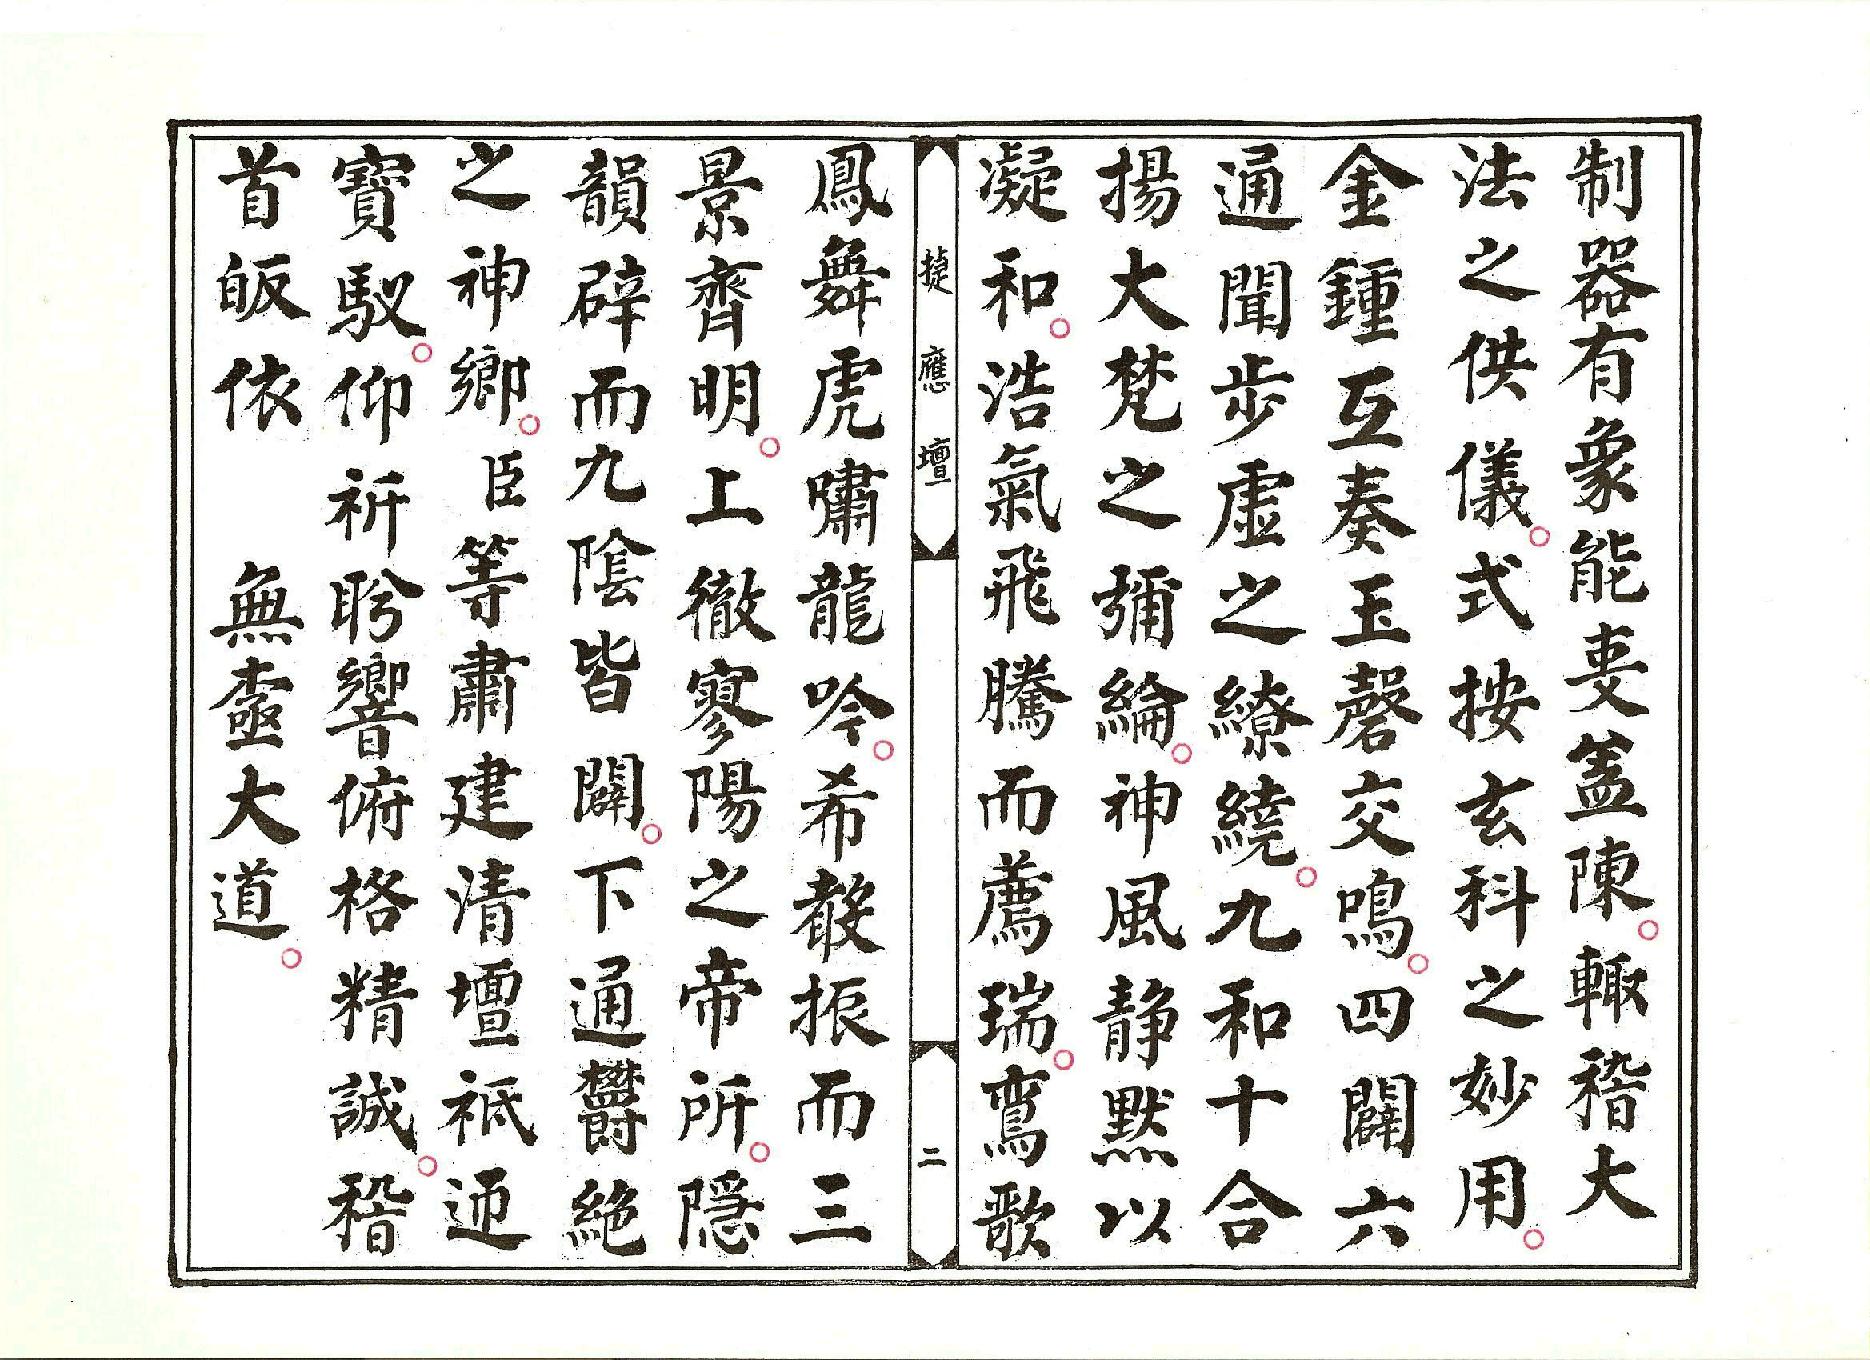 制器有象能叓盖陳。輙稽大
法之供儀。式按玄科之妙用。
金鍾互奏玉磬交鳴。四闢六
通聞步虛之繚繞。九和十合
揚大梵之彌綸。神風静默以
凝和。浩氣飛騰而薦瑞。鸞歌
捷應壇 二
鳳舞虎嘯龍吟。希振而三
景齊明。上徹寥陽之帝所。隱
韻辟而九陰皆闢。下通鬱絕
之神鄉。臣等肅建清壇祗迊
寶馭。仰祈肹響俯格精誠。稽
首皈依 無大道。